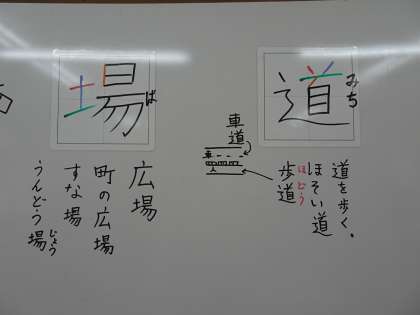 道
みち
道を歩く。
ほそい道
歩道
ほどう
車道
車
人
場
ば
広場
町の広場
すな場
うんどう場
じょう